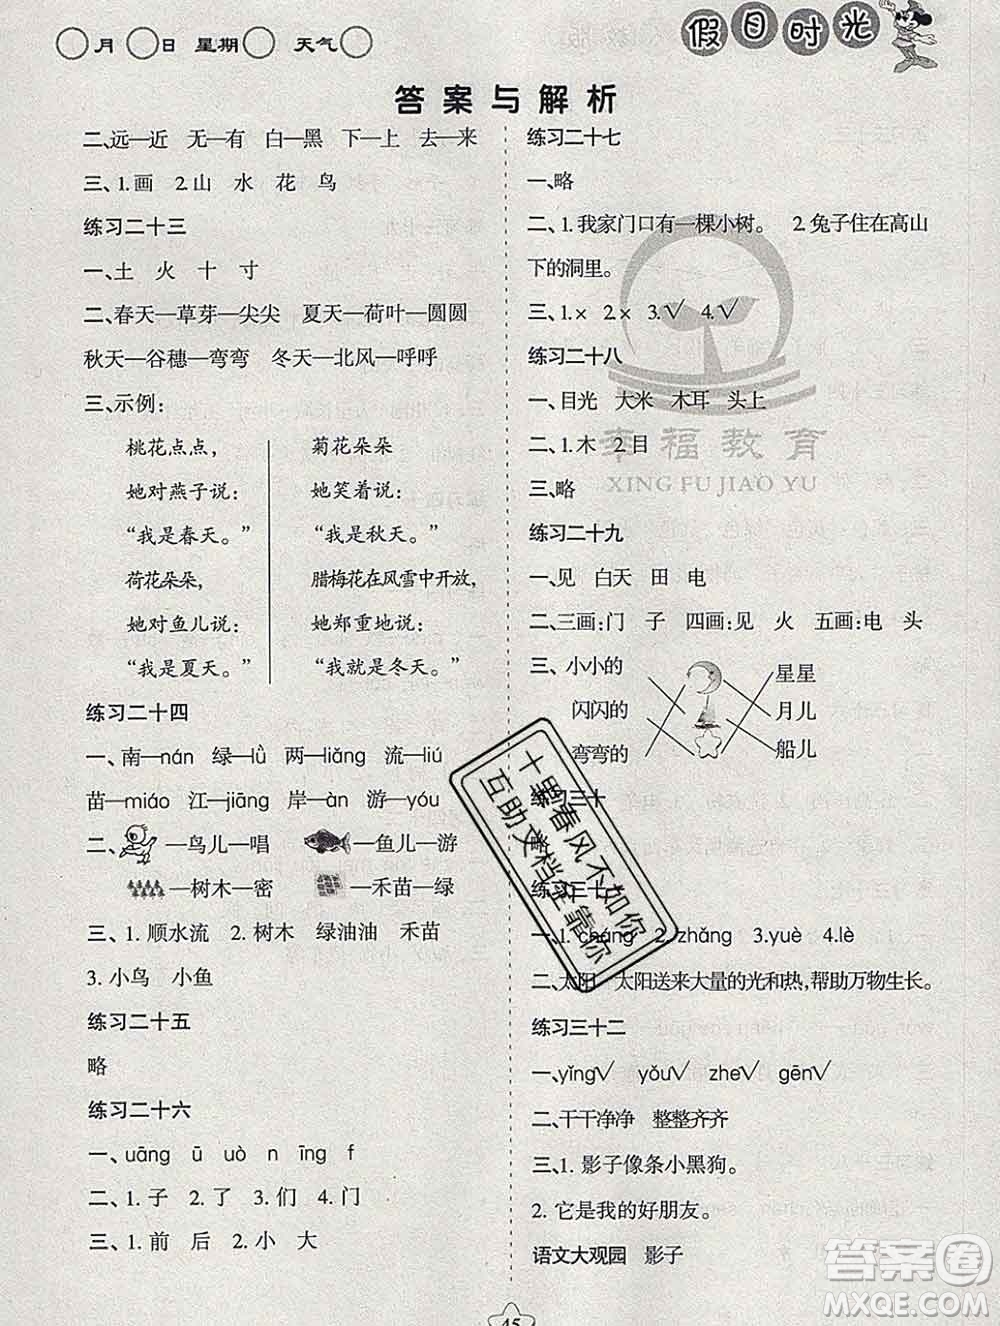 月 日 星期 天气
假日时光
答案与解析
二、远—近 无—有 白—黑 下—上 去—来
三、1.画 2.山 水 花 鸟
练习二十三
一、土 火 十 寸
二、春天—草芽—尖尖 夏天—荷叶—圆圆
秋天—谷穗—弯弯 冬天—北风—呼呼
三、示例：
桃花点点，
她对燕子说：
“我是春天。”
荷花朵朵，
她对鱼儿说：
“我是夏天。”
菊花朵朵
她笑着说：
“我是秋天。”
腊梅花在风雪中开放，
她郑重地说：
“我就是冬天。”
练习二十四
一、南—nán 绿—lǜ 两—liǎng 流—liú
苗—miáo 江—jiāng 岸—àn 游—yóu
二、—鸟儿—唱 —鱼儿—游
—树木—密 —禾苗—绿
三、1.顺水流 2.树木 绿油油 禾苗
3.小鸟 小鱼
练习二十五
略
练习二十六
一、uāng ū uò n īng f
二、1.子 2.了 3.们 4.门
三、1.前 后 2.小 大
练习二十七
一、略
二、1.我家门口有一棵小树。 2.兔子住在高山
下的洞里。
三、1.× 2.× 3.√ 4.√
练习二十八
一、目光 大米 木耳 头上
二、1.木 2.目
三、略
练习二十九
一、见 白天 田 电
二、三画：门 子 四画：见 火 五画：电 头
三、小小的 星星
闪闪的 月儿
弯弯的 船儿
练习三十
练习三十
一、1.cháng 2.zhǎng 3.yuè 4.lè
二、太阳 太阳送来大量的光和热，帮助万物生长。
练习三十二
一、yǐng√ yǒu√ zhe√ gēn√
二、干干净净 整整齐齐
三、1.影子像条小黑狗。
2.它是我的好朋友。
语文大观园 影子
45
幸福教育
XING FU JIAO YU
十里春风不如你
互助文档全靠你
答案圈
MXQE.COM